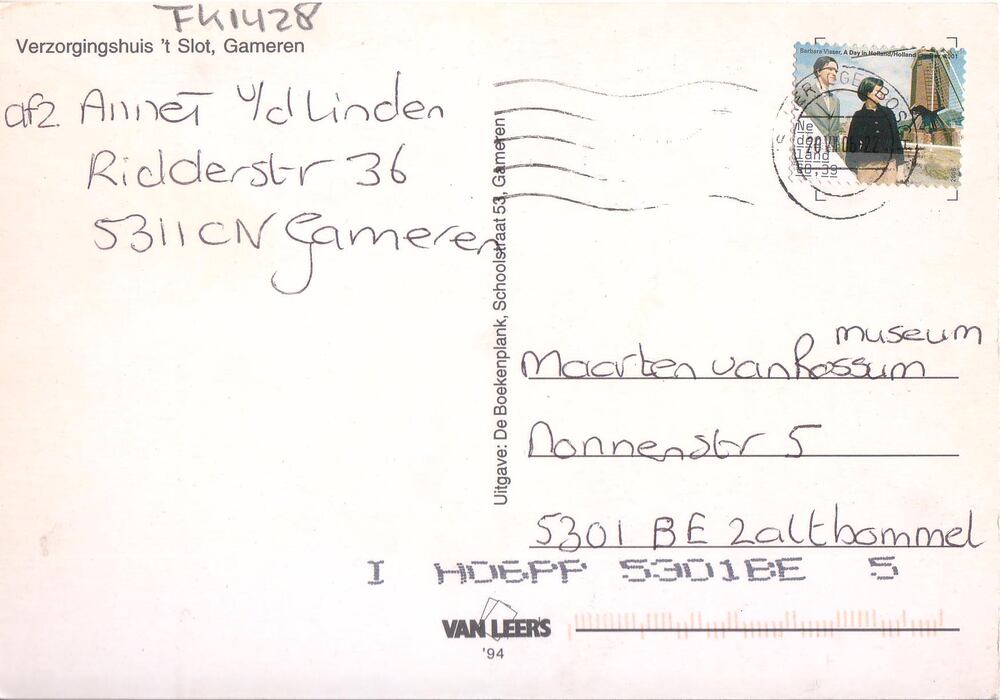 FK1428
Verzorgingshuis 't Slot, Gameren
afz. Annet v/d Linden
Ridderstr 36
5311CN Gameren
Uitgave: De Boekenplank, Schoolstraat 53, Gameren
Barbara Visser, A Day in Holland/Holland
Ne
der
land
museum
Maarten van Rossum
Nonnenstr 5
5301 BE Zaltbommel
I HD6PP 5301BE 5
VAN LEER'S
'94